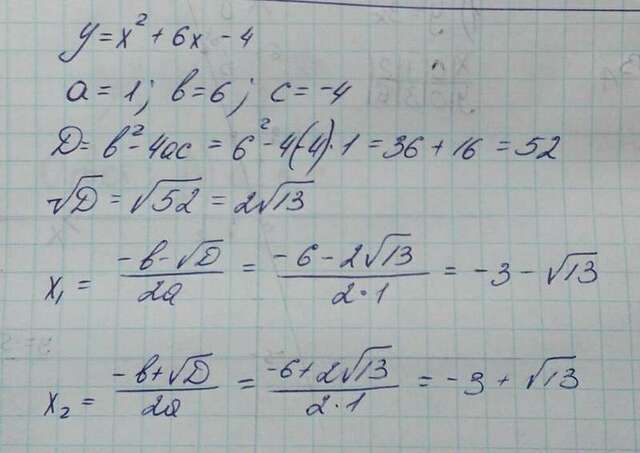 y = x² + 6x - 4
a = 1; b = 6; c = -4
D = b² - 4ac = 6² - 4(-4)·1 = 36 + 16 = 52
√D = √52 = 2√13
x₁ = (-b - √D)/(2a) = (-6 - 2√13)/(2·1) = -3 - √13
x₂ = (-b + √D)/(2a) = (-6 + 2√13)/(2·1) = -3 + √13